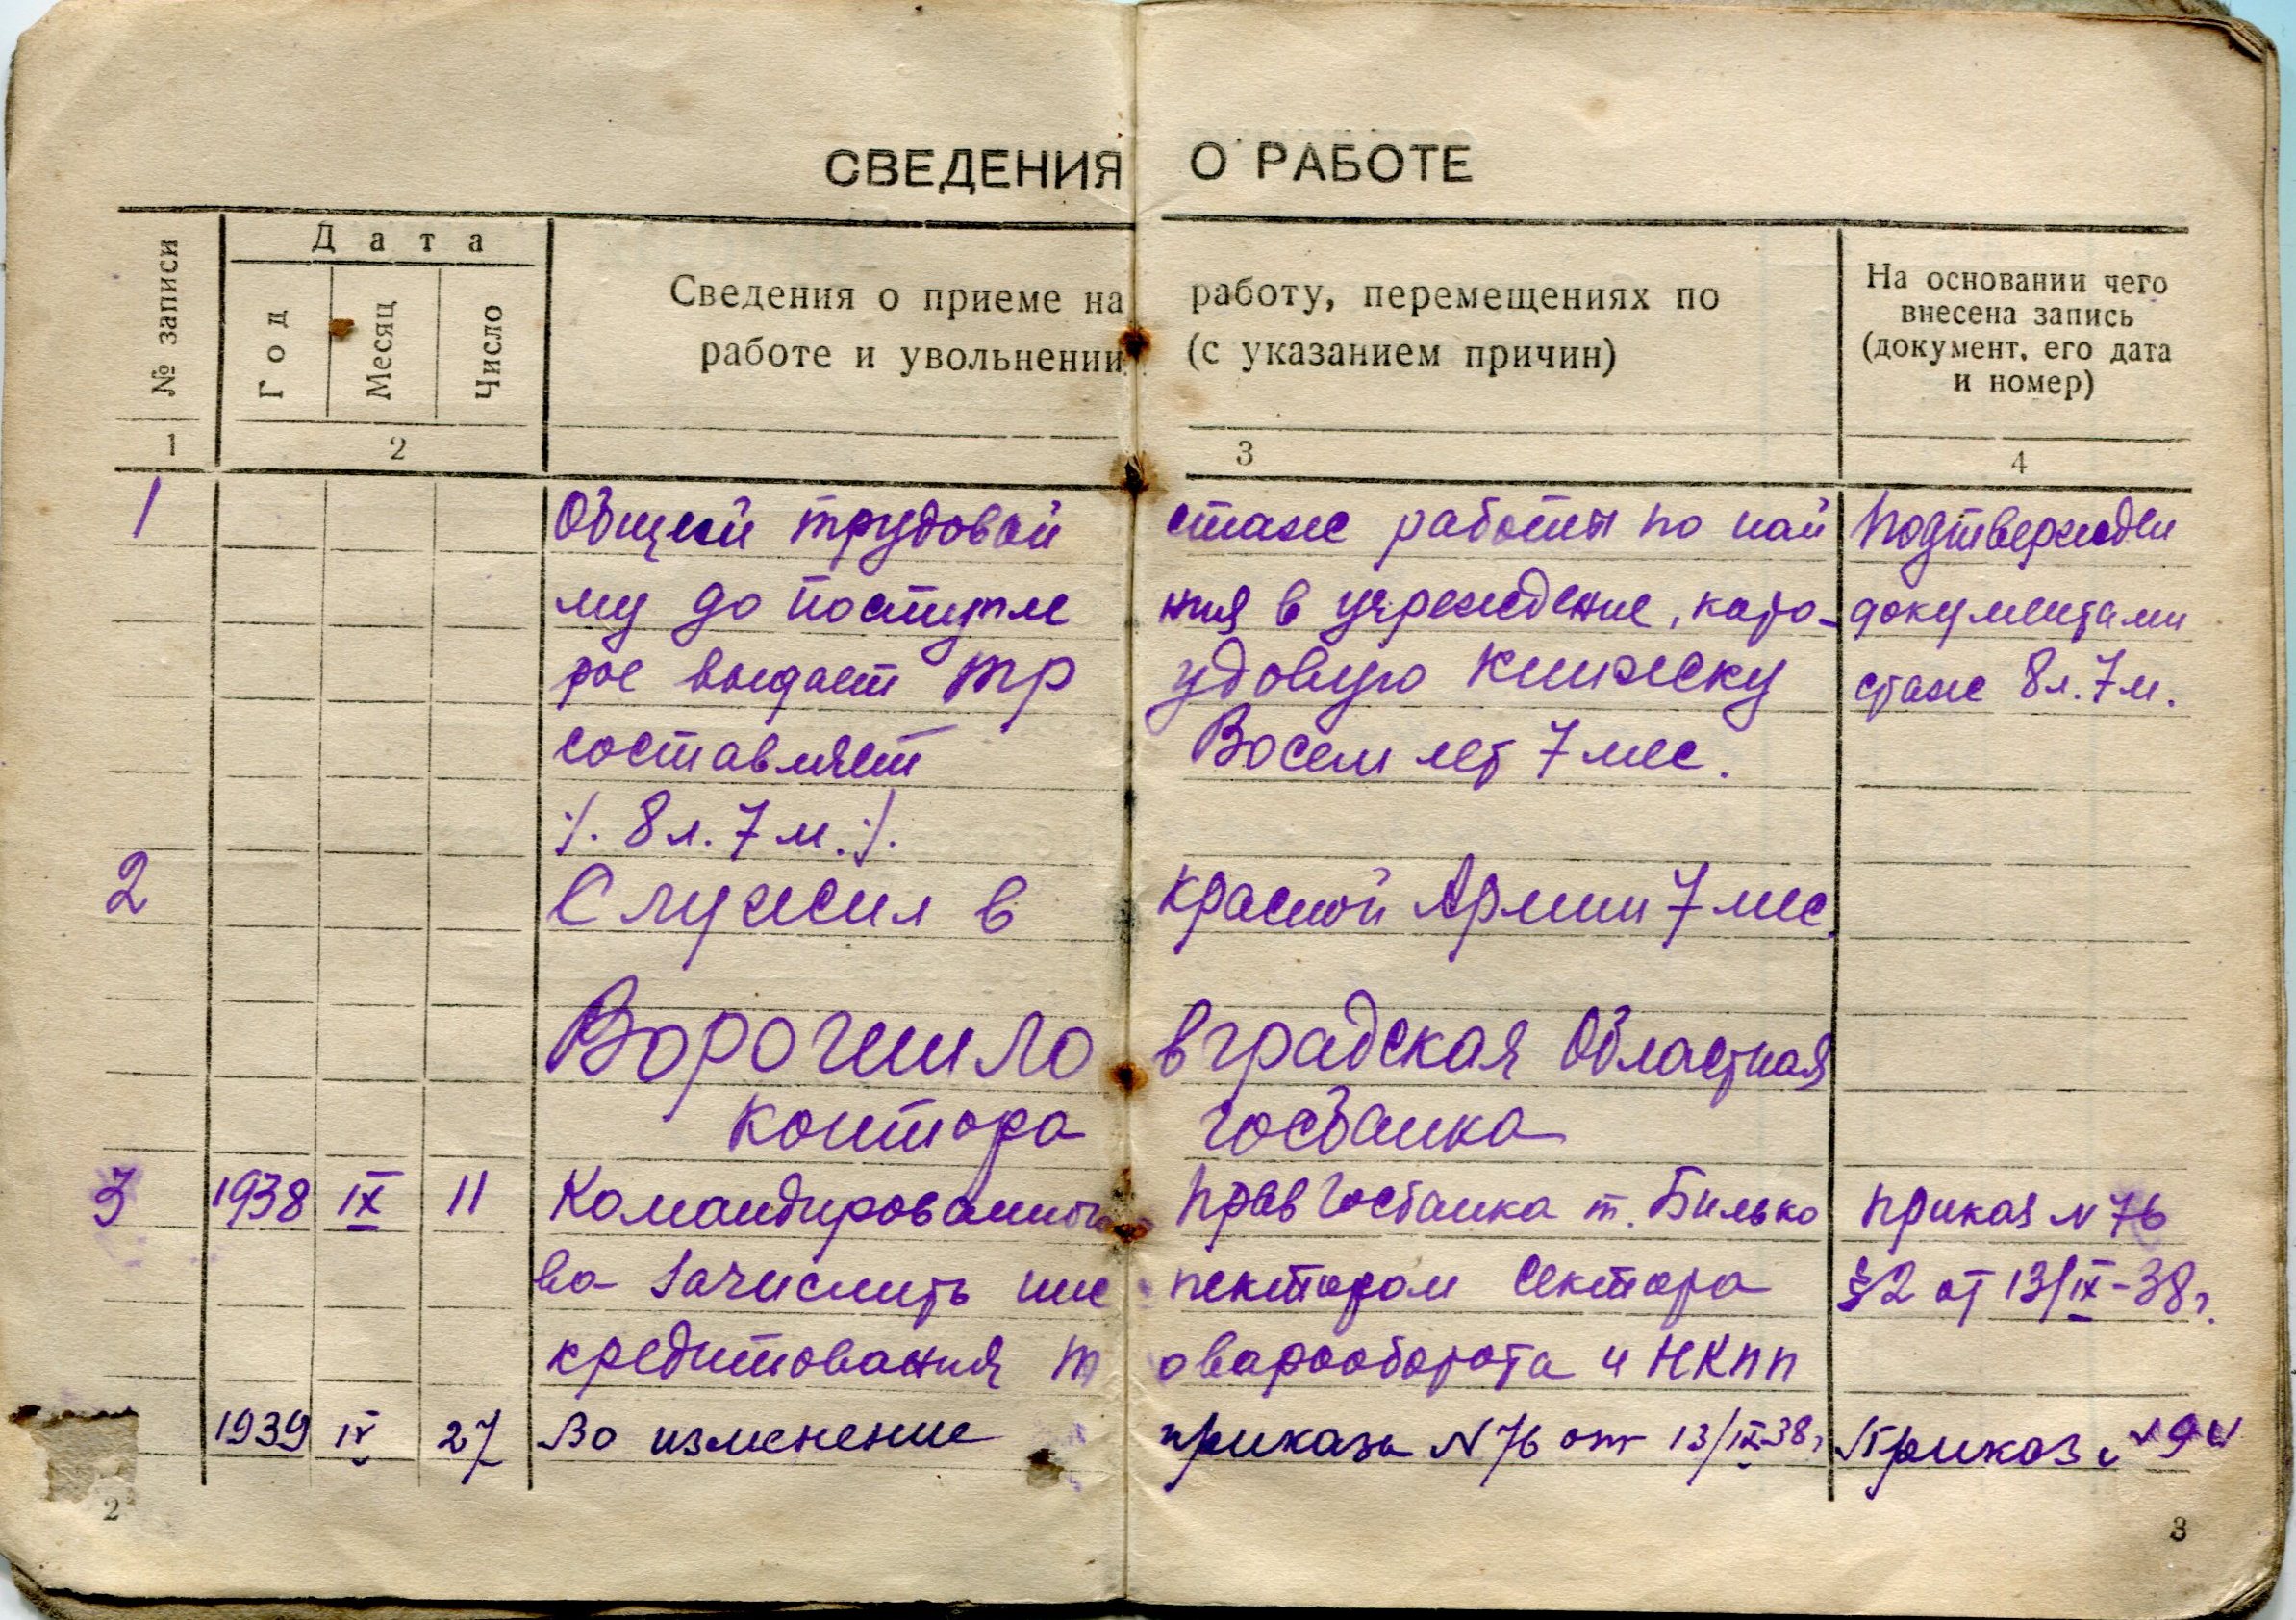 СВЕДЕНИЯ О РАБОТЕ
№ записи
Дата
Год
Месяц
Число
Сведения о приеме на работу, перемещениях по
работе и увольнении (с указанием причин)
На основании чего
внесена запись
(документ, его дата
и номер)
1 2 3 4
1 Общий трудовой стаж работы по най Подтвержден
му до поступле ния в учреждение, кото- документами
рое выдает тр удовую книжку стаж 8 л. 7 м.
составляет Восем лет 7 мес.
./. 8 л. 7 м. ./.
2 Служил в Красной Армии 7 мес.
Ворошило вградская Областная
контора Госбанка
3 1938 IX 11 Командированного Прав Госбанка т. Билько Приказ N 76
ва зачислить инс пектором сектора §2 от 13/IX-38г.
кредитования т оварооборота и НКПП
1939 IV 27 Во изменение приказа N 76 от 13/IX-38г Приказ N 94
2
3